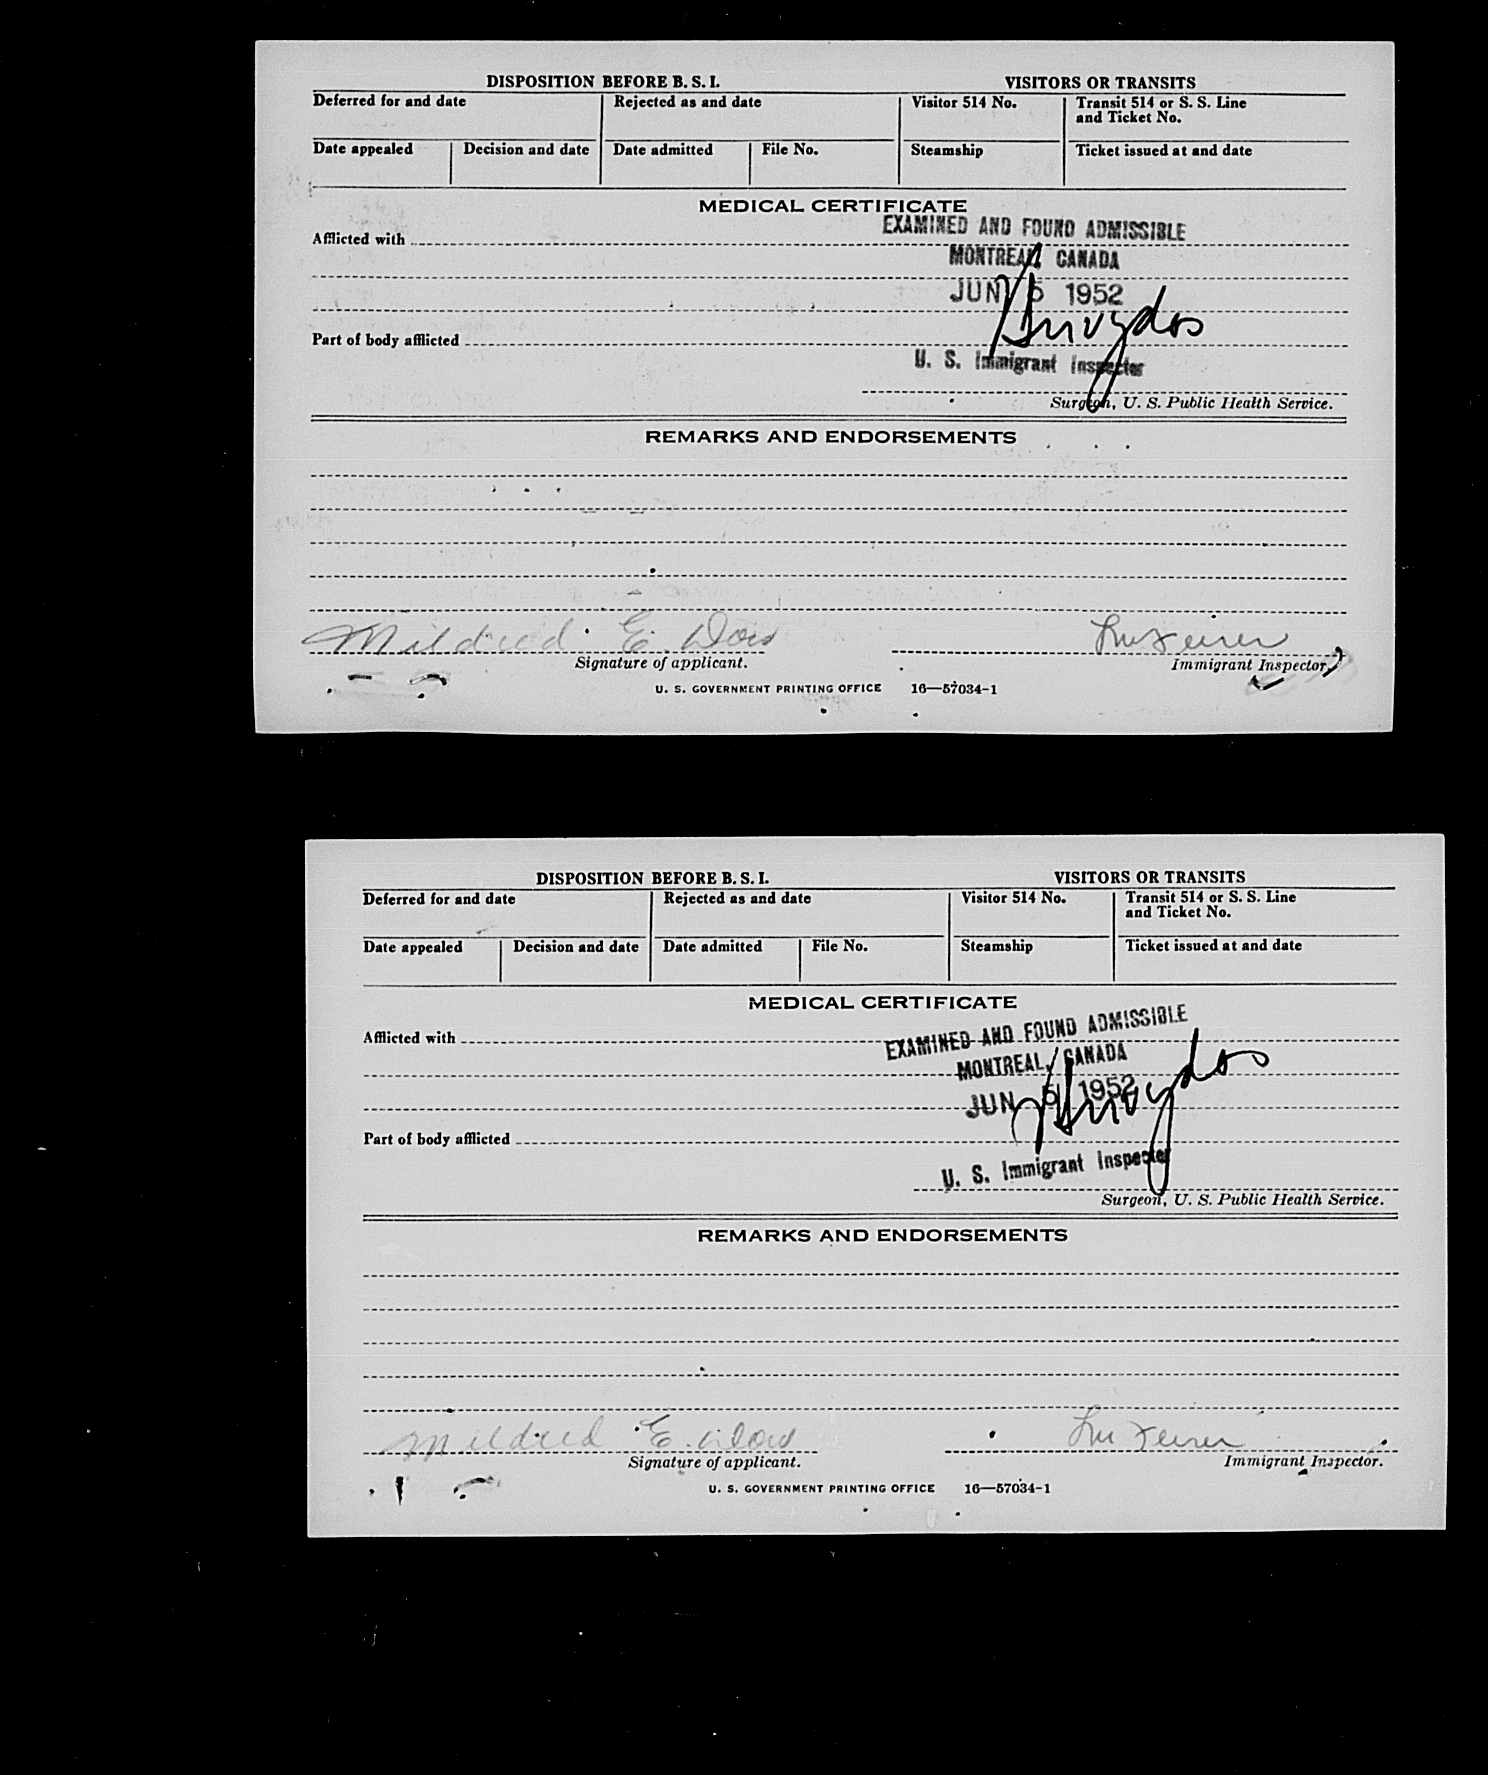 DISPOSITION BEFORE B. S. I. VISITORS OR TRANSITS
Deferred for and date Rejected as and date Visitor 514 No. Transit 514 or S. S. Line
and Ticket No.
Date appealed Decision and date Date admitted File No. Steamship Ticket issued at and date
MEDICAL CERTIFICATE
EXAMINED AND FOUND ADMISSIBLE
Afflicted with
MONTREAL, CANADA
JUN 5 1952
Part of body afflicted
U. S. Immigrant Inspector
Surgeon, U. S. Public Health Service.
REMARKS AND ENDORSEMENTS
Mildred E. Dow
Signature of applicant. Immigrant Inspector.
U. S. GOVERNMENT PRINTING OFFICE 16—57034-1
DISPOSITION BEFORE B. S. I. VISITORS OR TRANSITS
Deferred for and date Rejected as and date Visitor 514 No. Transit 514 or S. S. Line
and Ticket No.
Date appealed Decision and date Date admitted File No. Steamship Ticket issued at and date
MEDICAL CERTIFICATE
EXAMINED AND FOUND ADMISSIBLE
Afflicted with
MONTREAL, CANADA
JUN 5 1952
Part of body afflicted
U. S. Immigrant Inspector
Surgeon, U. S. Public Health Service.
REMARKS AND ENDORSEMENTS
Mildred E. Dow
Signature of applicant. Immigrant Inspector.
U. S. GOVERNMENT PRINTING OFFICE 16—57034-1